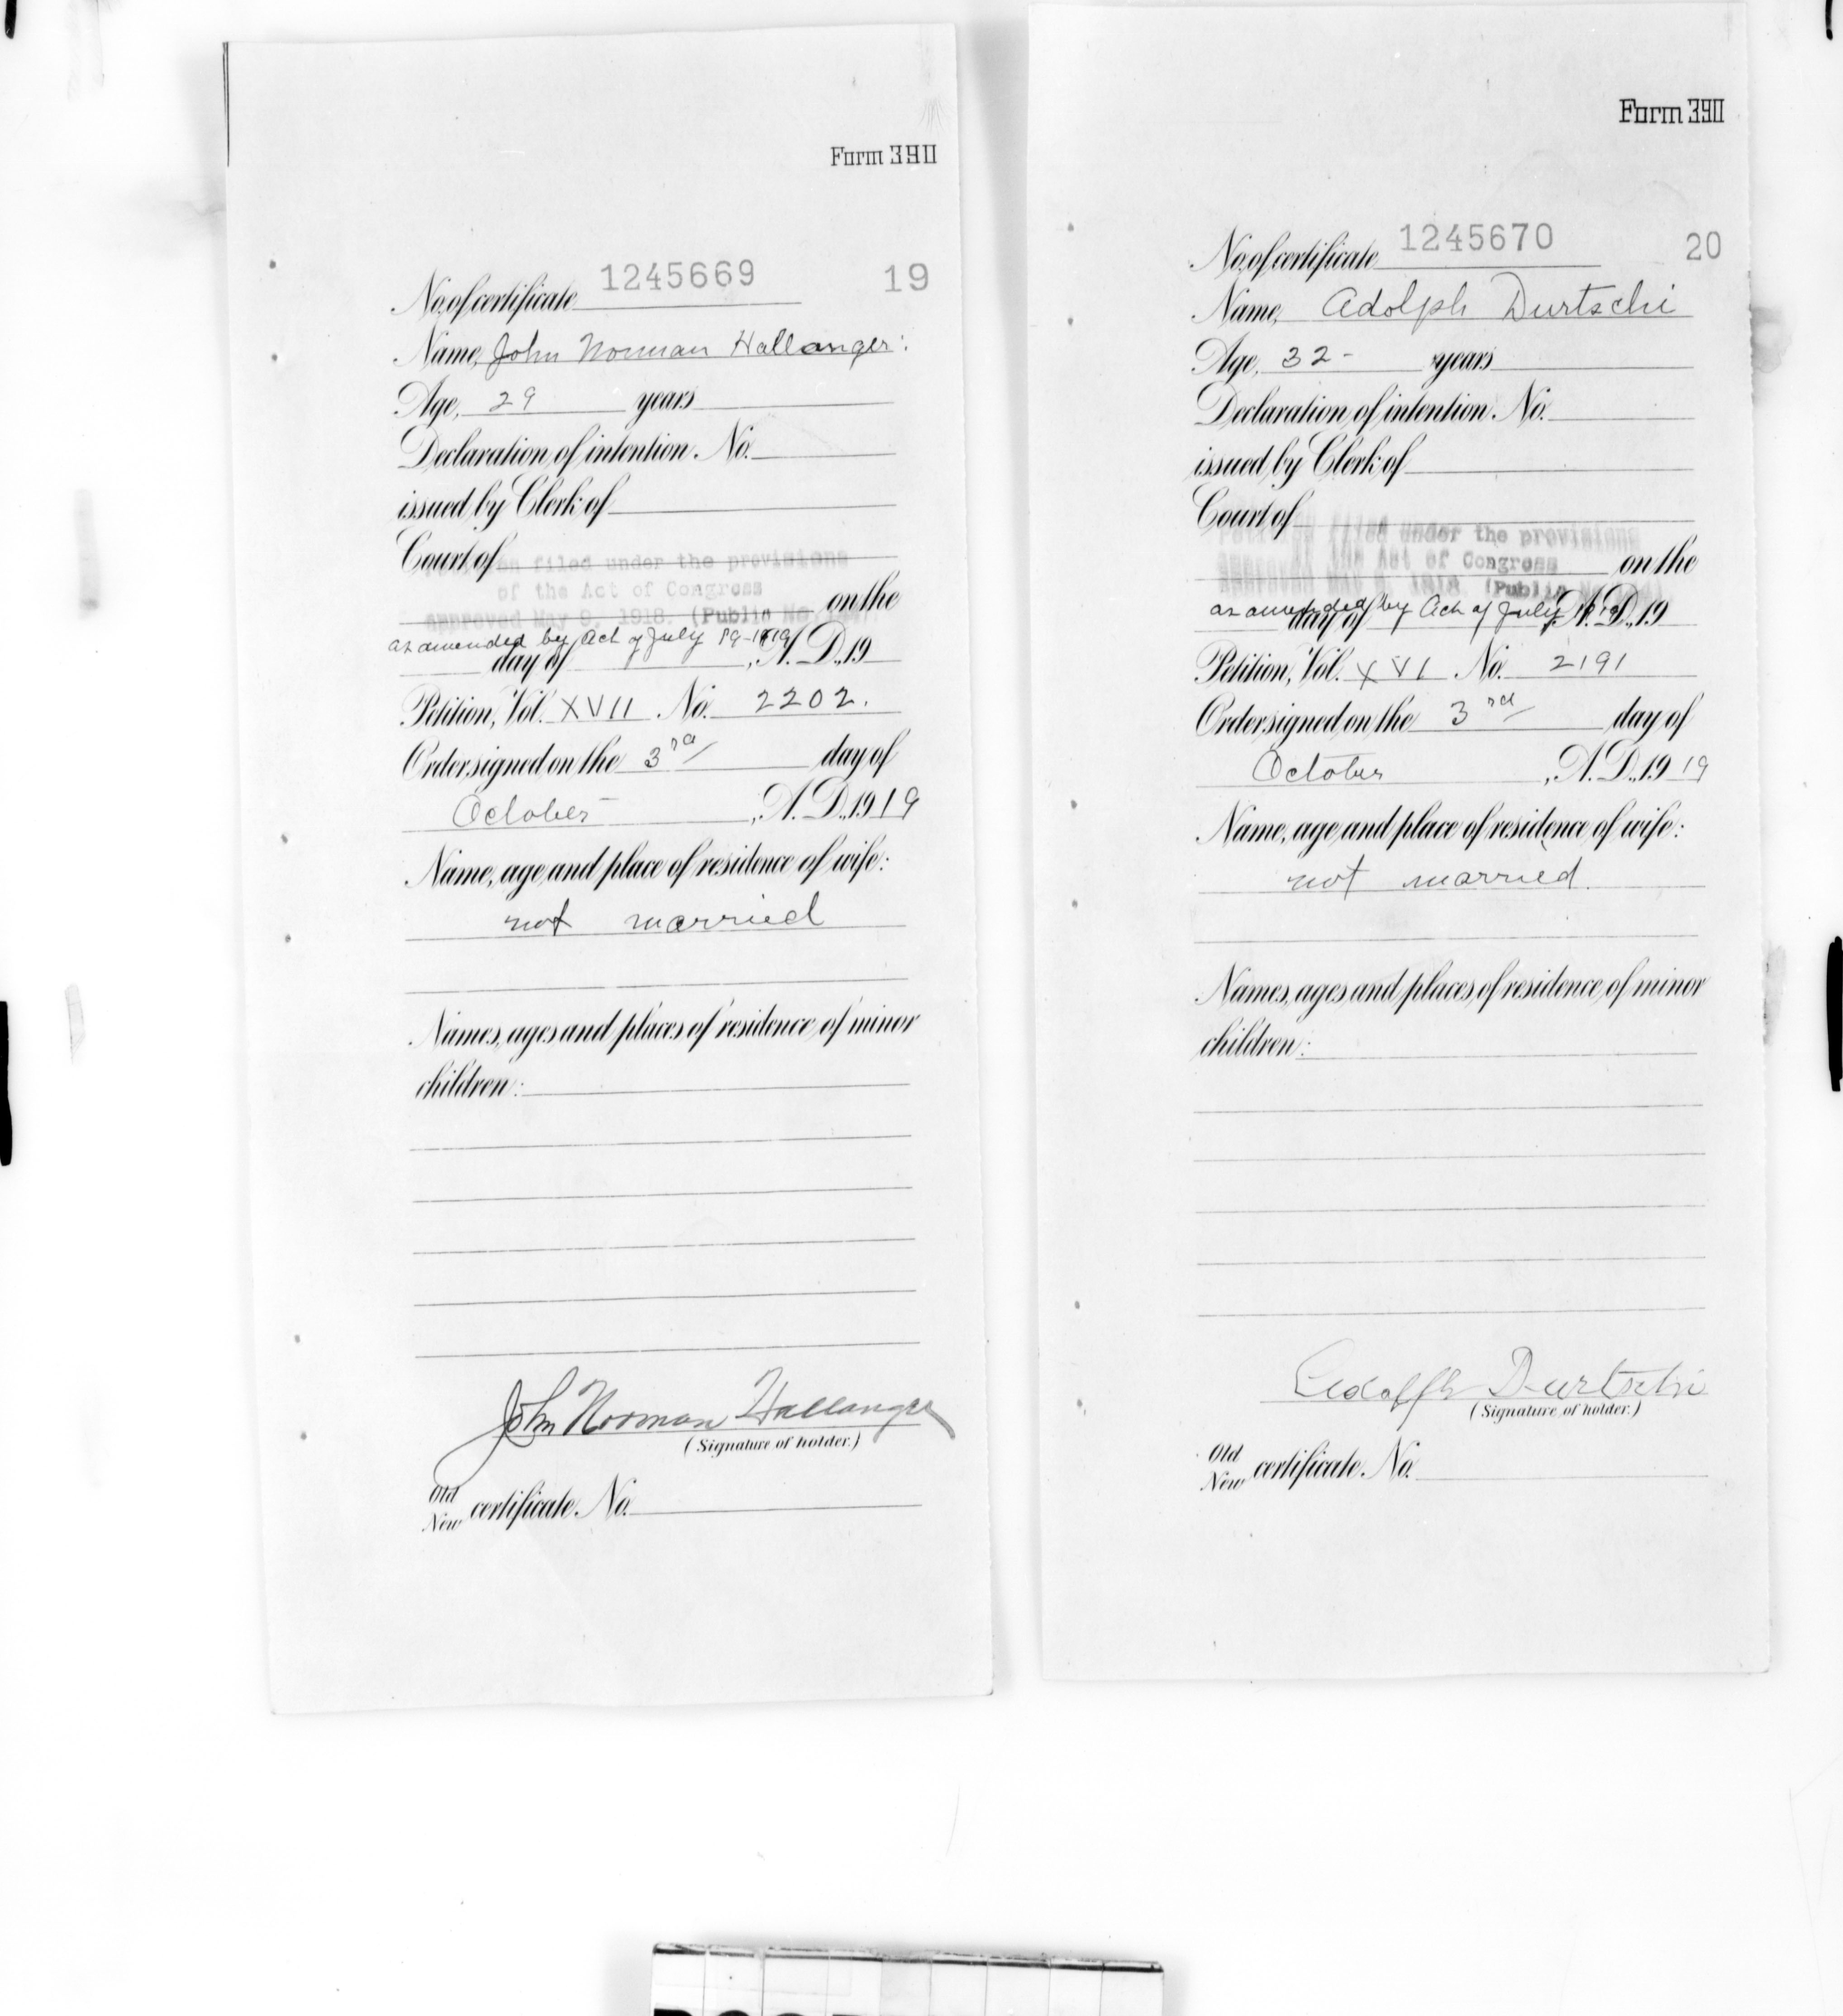 Form 390
No. of certificate 1245669 19
Name, John Norman Hallanger.
Age, 29 years
Declaration of intention No.
issued by Clerk of
Court of filed under the provisions
of the Act of Congress
approved May 9, 1918. (Public No on the
as amended by Act of July 19-1919
day of , A. D., 19
Petition, Vol. XVII . No. 2202.
Order signed on the 3rd day of
October , A. D., 1919
Name, age and place of residence of wife:
not married
Names, ages and places of residence of minor
children:
John Norman Hallanger
(Signature of holder.)
Old
New certificate No.
Form 390
No. of certificate 1245670 20
Name, Adolph Durtschi
Age, 32 - years
Declaration of intention No.
issued by Clerk of
Court of
filed under the provisions
of the Act of Congress on the
approved May 9, 1918 (Public
as amended by Act of July
day of A. D., 19
Petition, Vol. XVI No. 2191
Order signed on the 3rd day of
October , A. D., 1919
Name, age and place of residence of wife:
not married.
Names, ages and places of residence of minor
children:
Adolph Durtschi
(Signature of holder.)
Old
New certificate No.